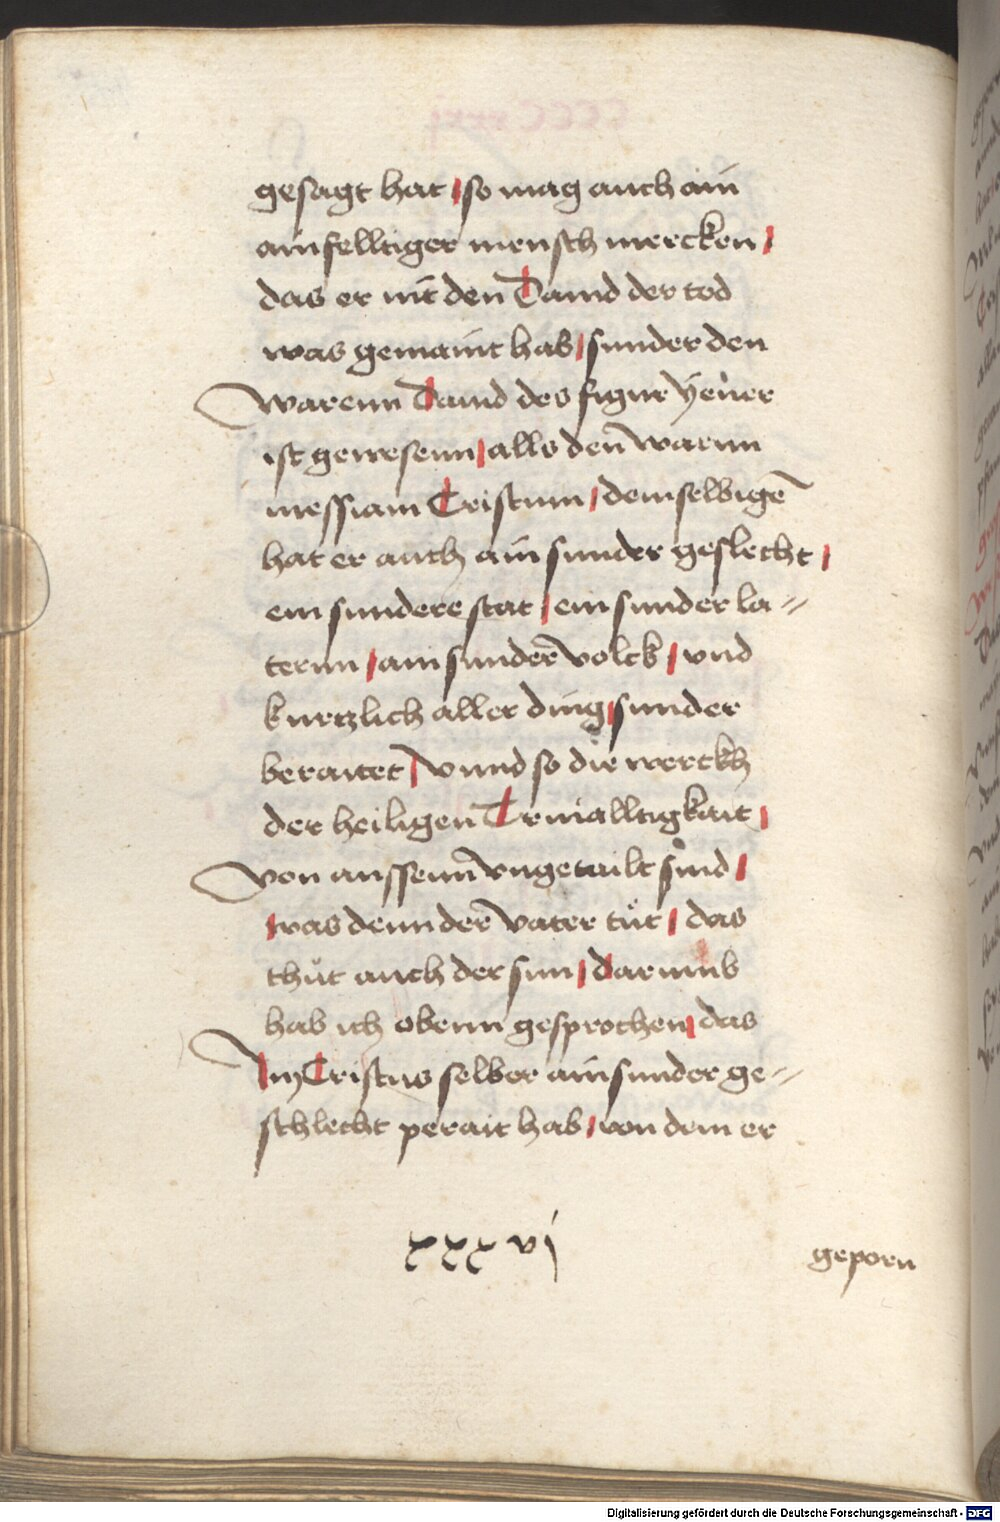 gesagt hat / so mag auch ain
ainfelltiger mensch mercken /
das er nit den Dauid der tod
was gemaint hab / sunder den
warenn Dauid des figur yener
ist gewesenn / alls den warnn
messiam Cristum / demselbigē
hat er auch ain sunder geslecht /
ein sundere stat / ein sunder la=
ternn / ain sunder volck / vnd
kurtzlich aller ding / sunder
beraitet / vnnd so die werckh
der heiligen Triualltigkait /
von aussenn vngetailt sind /
was denn der vater tůt / das
thůt auch der sun / darumb
hab ich obenn gesprochen / das
Im Cristus selber ain sunder ge=
schlecht perait hab / von dem er
xxxvj
geporn
Digitalisierung gefördert durch die Deutsche Forschungsgemeinschaft - DFG